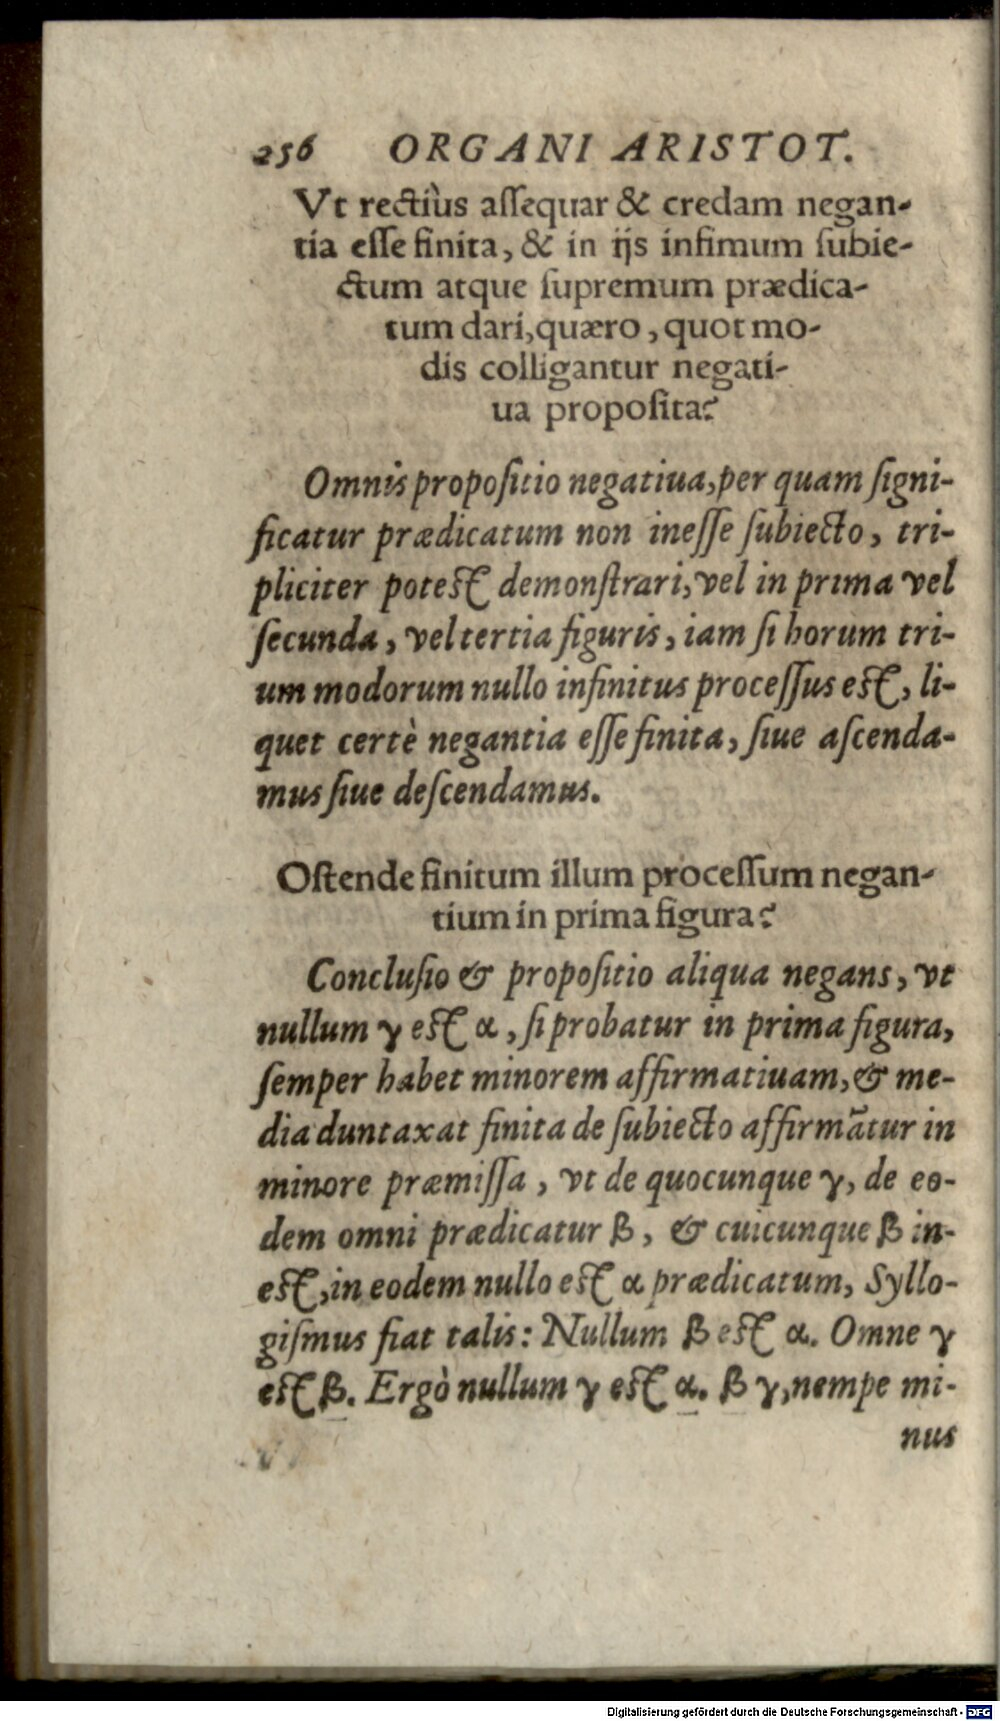 256 ORGANI ARISTOT.
Vt rectiùs aſſequar & credam negan-
tia eſſe finita, & in ijs infimum ſubie-
ctum atque ſupremum prædica-
tum dari, quæro, quot mo-
dis colligantur negati-
ua propoſita?
Omnis propoſitio negatiua, per quam ſigni-
ficatur prædicatum non ineſſe ſubiecto, tri-
pliciter poteſt demonſtrari, vel in prima vel
ſecunda, vel tertia figuris, iam ſi horum tri-
um modorum nullo infinitus proceſſus eſt, li-
quet certè negantia eſſe finita, ſiue aſcenda-
mus ſiue deſcendamus.
Oſtende finitum illum proceſſum negan-
tium in prima figura?
Concluſio & propoſitio aliqua negans, vt
nullum γ eſt α, ſi probatur in prima figura,
ſemper habet minorem affirmatiuam, & me-
dia duntaxat finita de ſubiecto affirmãtur in
minore præmiſſa, vt de quocunque γ, de eo-
dem omni prædicatur β, & cuicunque β in-
eſt, in eodem nullo eſt α prædicatum, Syllo-
giſmus fiat talis: Nullum β eſt α. Omne γ
eſt β. Ergò nullum γ eſt α. β γ, nempe mi-
nus
Digitalisierung gefördert durch die Deutsche Forschungsgemeinschaft - DFG